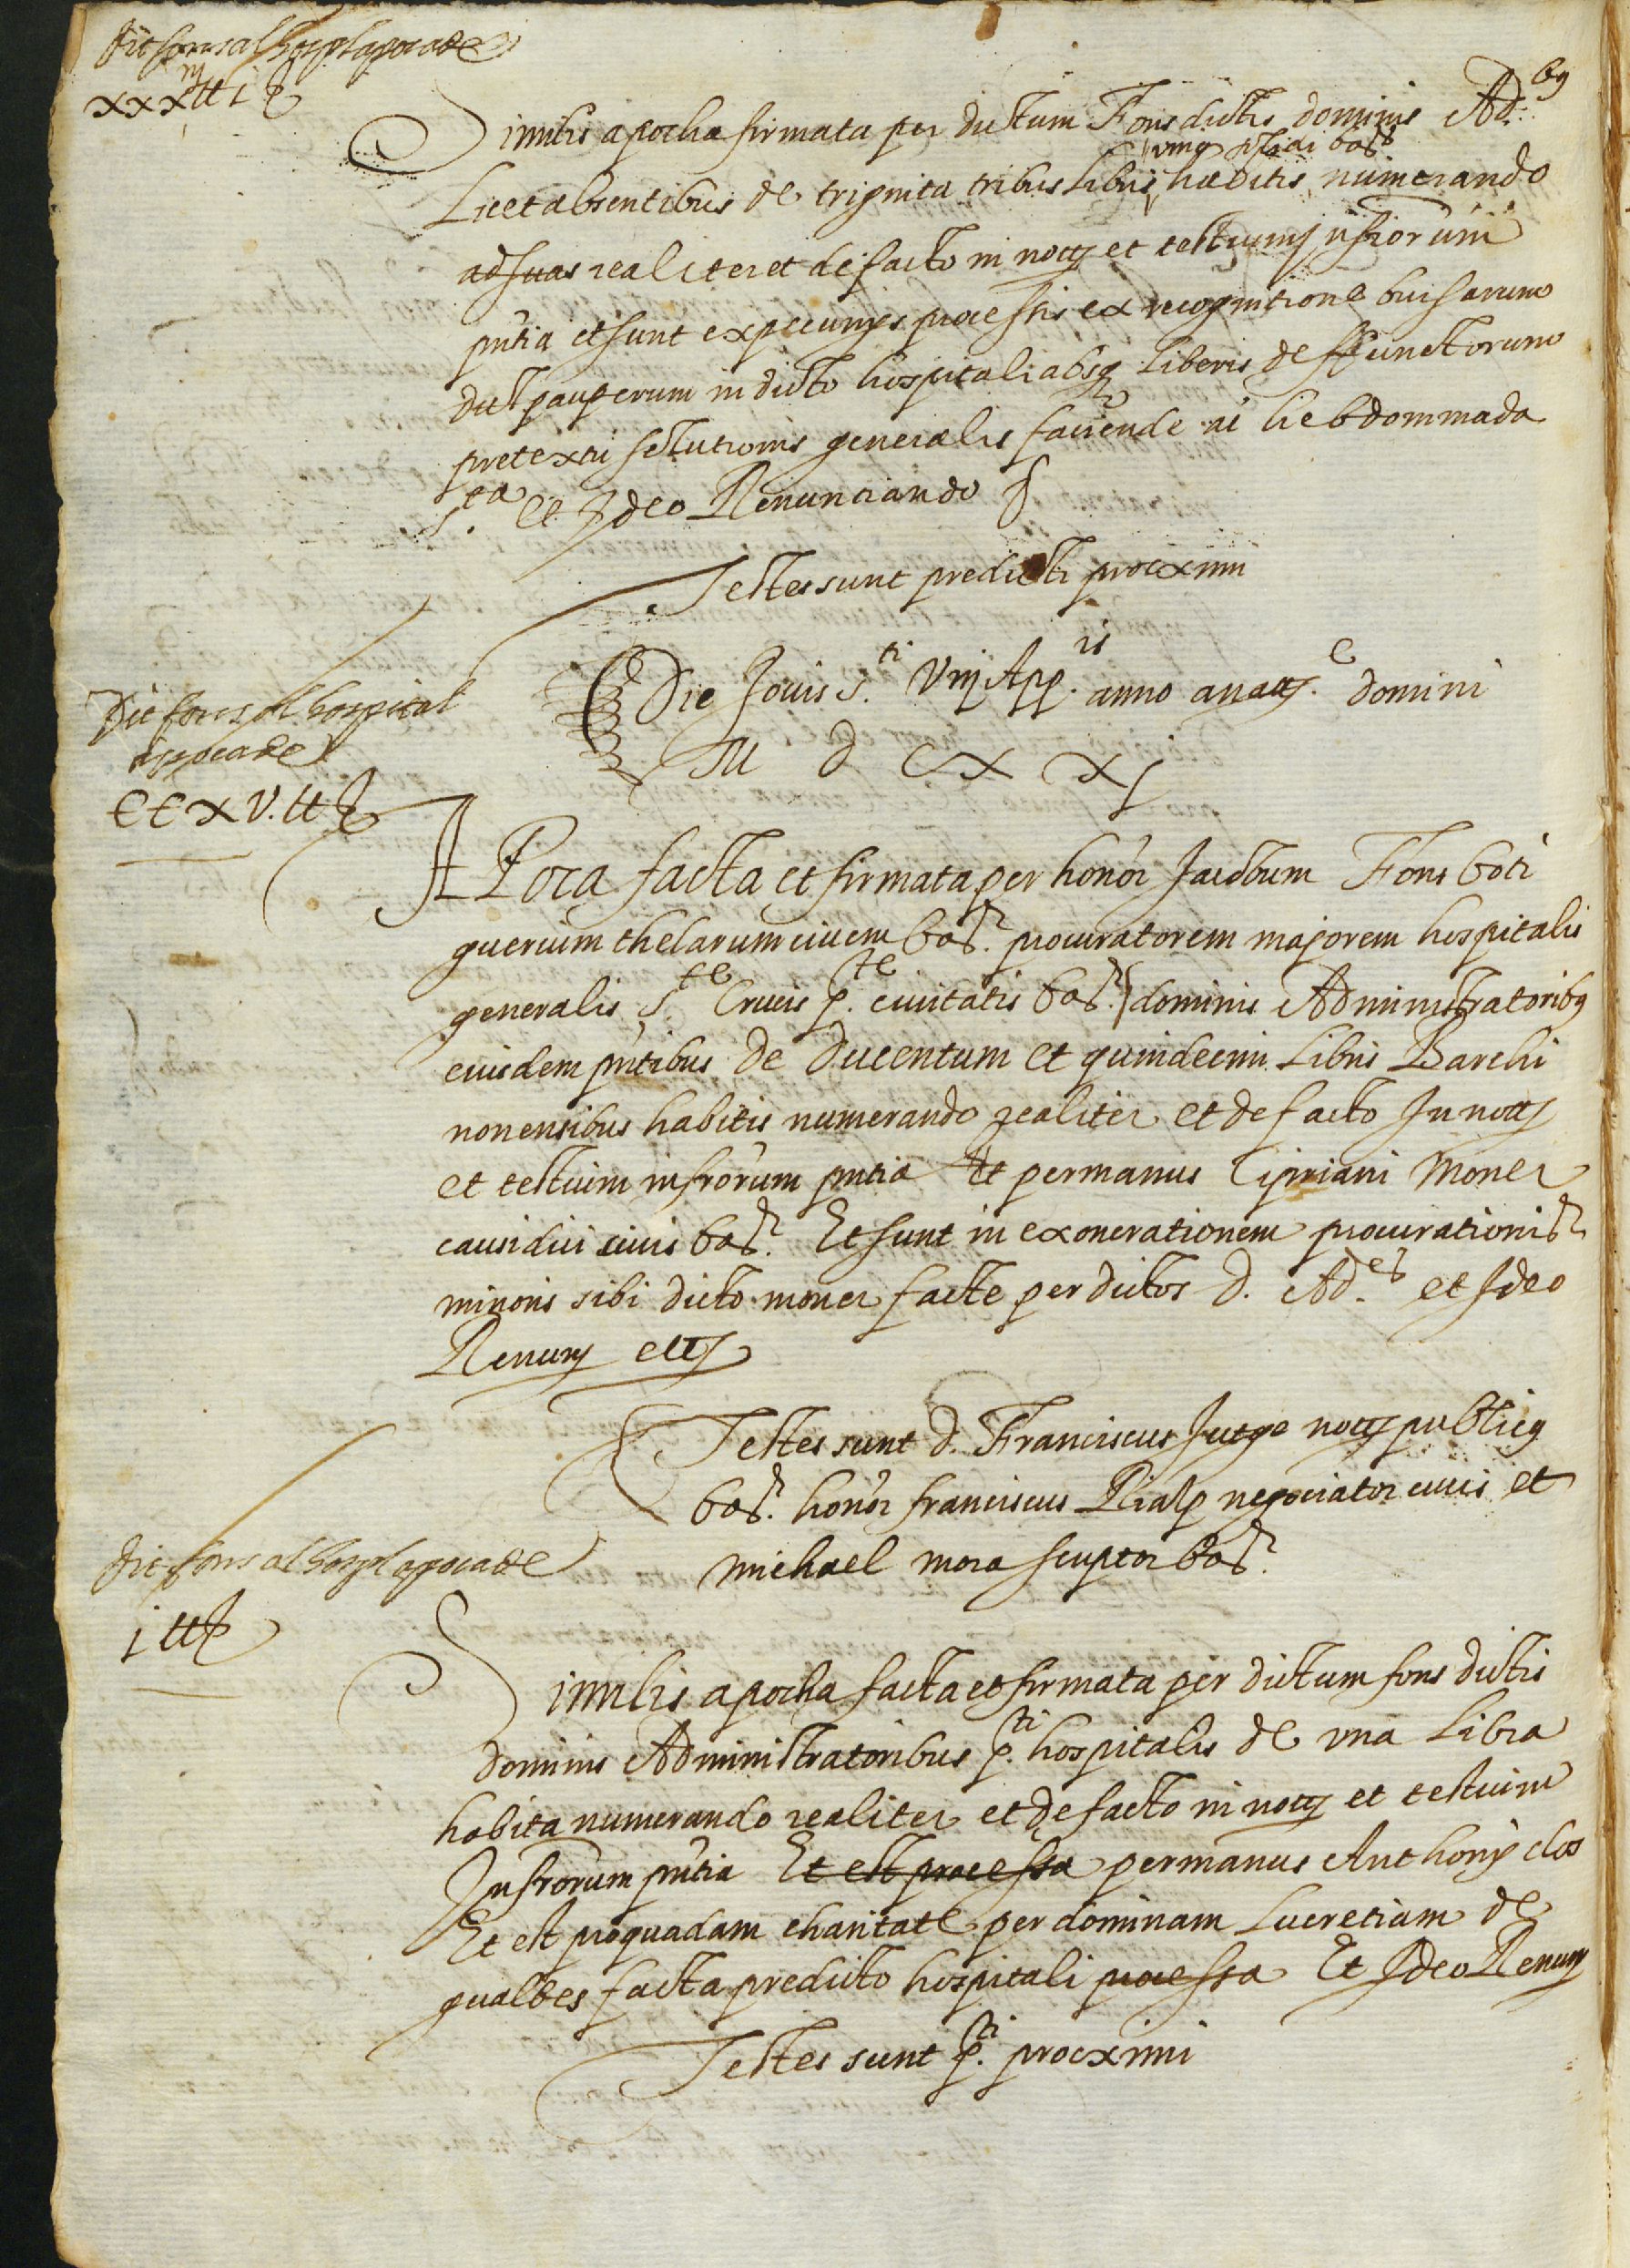 dit fons al hospl apoca de
xxxiij ll 1 s
Similis apocha firmata per dictum Fons dictis dominis Ad.bus
Licet absentibus de triginta tribus libris uno solidi bar habitis numerando
ad suas realiter et de facto in notj et testium infrorum
pntia et sunt ex pecunijs processis ex recognitione bursarum
dict pauperum in dicto hospitali absq liberis deffunctorum
pretextu solutionis generalis faciende in hebdommada
s.ta et Ideo Renunciando
Testes sunt predicti procximi
Die Jouis s.ti Viij App.is anno a natj.e domini
M D C X X j
dit fons al hospital
appoca de
CC x v. ll
APoca facta et firmata per honor Jacobum Fons boti
guerium thelarum ciuem bar. procuratorem majorem hospitalis
generalis S.te Crucis p.te ciuitatis bar. dominis Administratoribus
eiusdem pntibus de Ducentum et quindecim Libris Barchi
nonensibus habitis numerando realiter et de facto In notj
et testium infrorum pntia et per manus Cipriani Moner
causidici ciuis bar. Et sunt in exonerationem procurationis
minoris sibi dicto moner facte per dictos d. Ad.es et Ideo
Renunj etcj
Testes sunt d. Franciscus Jutge notj publicus
bar. honor franciscus Rialp negociator ciuis et
michael mora scriptor bar.
dit fons al hospl apoca de
j ll
Similis apocha facta et firmata per dictum fons dictis
dominis Administratoribus p.ti hospitalis de vna Libra
habita numerando realiter et de facto in notj et testium
Infrorum pntia Et est processa per manus Anthonij clos
Et est pro quadam charitate per dominam Lucretiam de
gualbes facta predicto hospitali processa Et Ideo Renunj
Testes sunt p.ti procximi